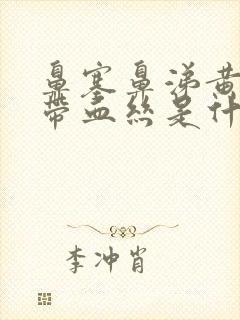 鼻塞鼻涕黄
带血丝是什
李冲肖